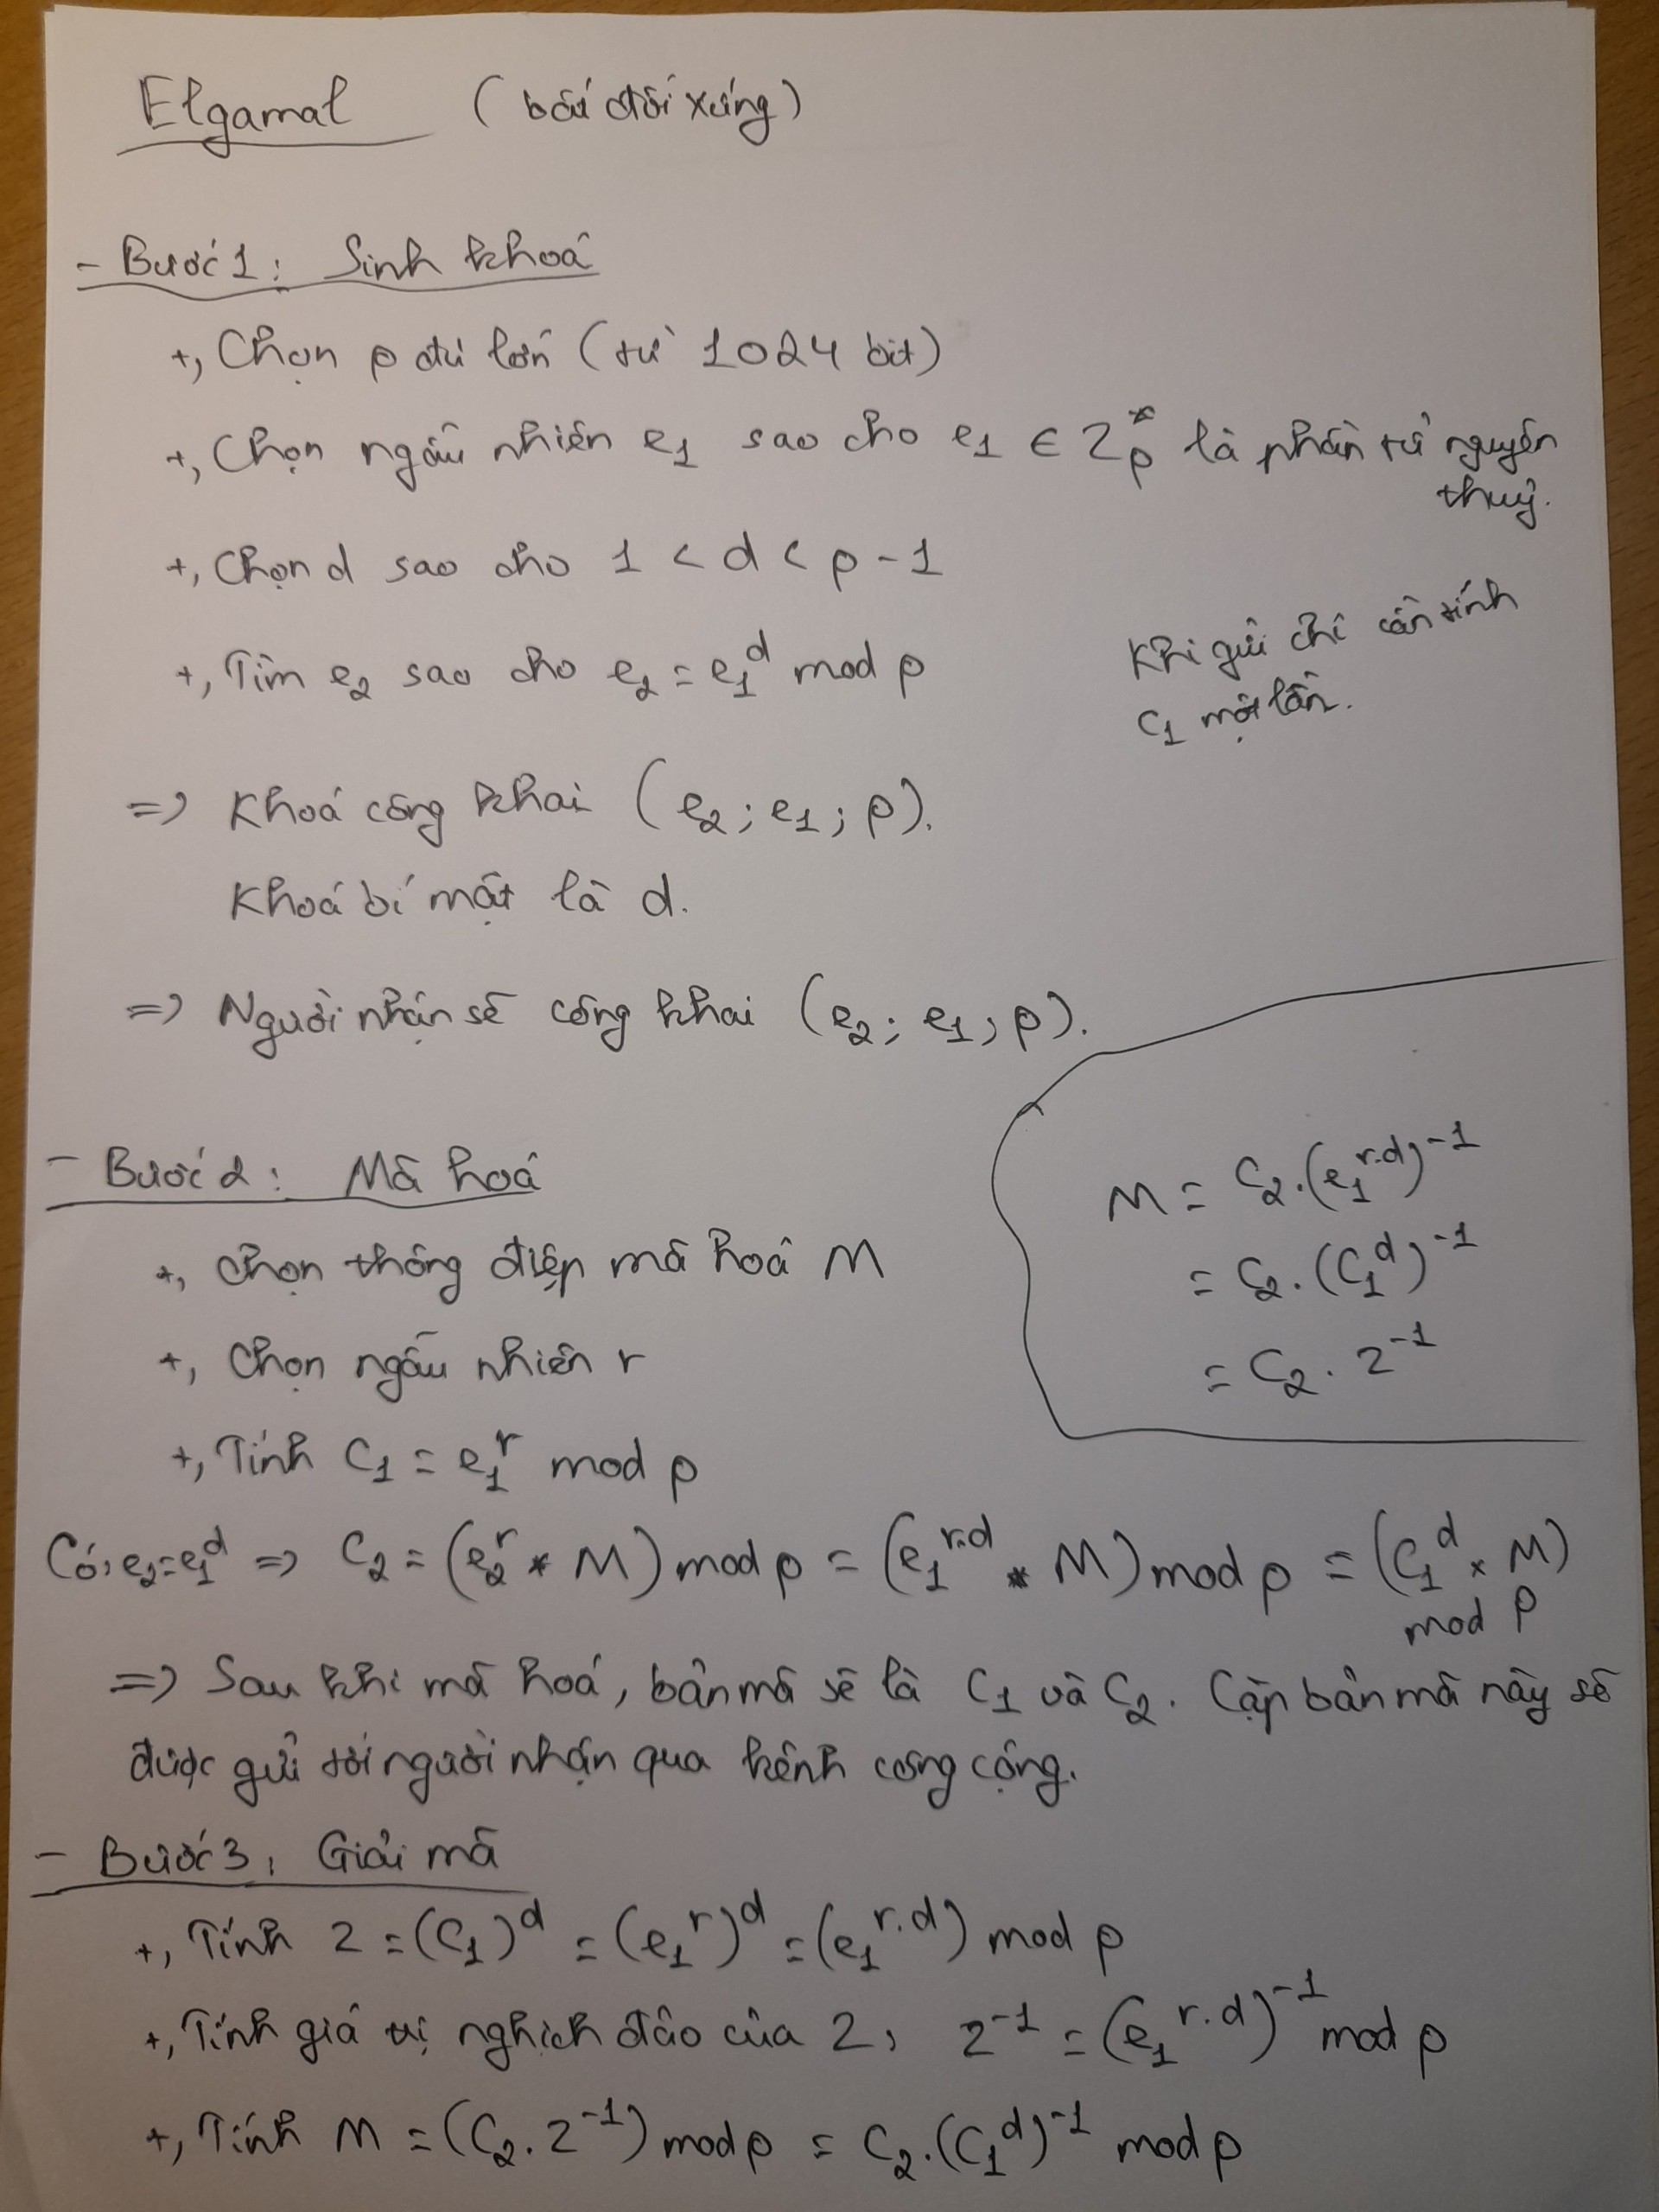 Elgamal (bất đối xứng)
- Bước 1: Sinh khoá
+, Chọn p đủ lớn (từ 1024 bit)
+, Chọn ngẫu nhiên e₁ sao cho e₁ ∈ Z*ₚ là phần tử nguyên
thuỷ.
+, Chọn d sao cho 1 < d < p - 1
+, Tìm e₂ sao cho e₂ = e₁^d mod p
Khi gửi chỉ cần tính
C₁ một lần.
=> Khoá công khai (e₂; e₁; p).
Khoá bí mật là d.
=> Người nhận sẽ công khai (e₂; e₁; p).
- Bước 2: Mã hoá
+, Chọn thông điệp mã hoá M
+, Chọn ngẫu nhiên r
+, Tính C₁ = e₁^r mod p
M = C₂.(e₁^r.d)^-1
= C₂.(C₁^d)^-1
= C₂. Z^-1
Có, e₂=e₁^d => C₂ = (e₂^r * M) mod p = (e₁^r.d * M) mod p = (C₁^d × M)
mod p
=> Sau khi mã hoá, bản mã sẽ là C₁ và C₂. Cặp bản mã này sẽ
được gửi tới người nhận qua kênh công cộng.
- Bước 3: Giải mã
+, Tính Z = (C₁)^d = (e₁^r)^d = (e₁^r.d) mod p
+, Tính giá trị nghịch đảo của Z, Z^-1 = (e₁^r.d)^-1 mod p
+, Tính M = (C₂. Z^-1) mod p = C₂.(C₁^d)^-1 mod p